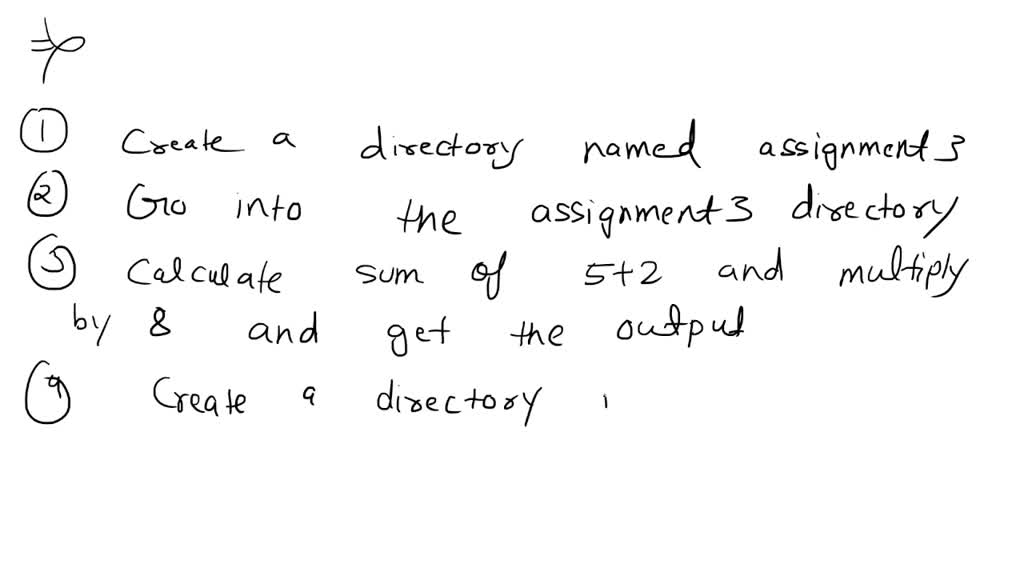 ① Create a directory named assignment3
② Go into the assignment3 directory
③ Calculate sum of 5+2 and multiply
by 8 and get the output
④ Create a directory